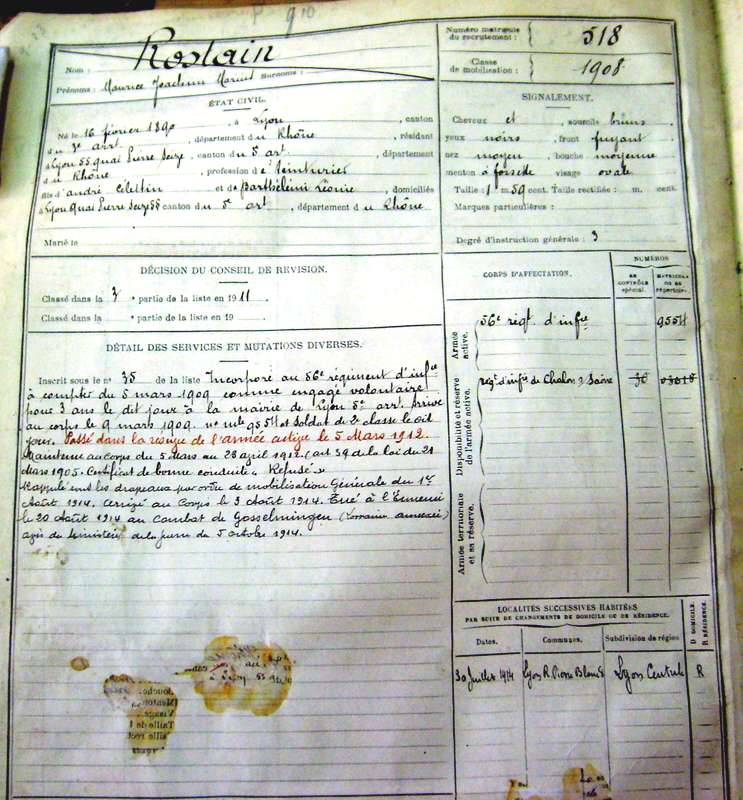 P 910
Rostain
Nom :
Prénoms : Maurice Joachim Marius Surnoms :
Numéro matricule du recrutement : 518
Classe de mobilisation : 1908
ÉTAT CIVIL.
Né le 16 février 1890, à Lyon, canton
d u 3e arrt, département d u Rhône, résidant
à Lyon 55 quai Pierre Seize, canton d u 5 art, département
d u Rhône, profession d e teinturier
fils d'andré Celestin et de Barthélémi Léonie, domiciliés
à Lyon Quai Pierre Seize 55 canton d u 5e art, département d u Rhône
Marié le
SIGNALEMENT.
Cheveux et, sourcils bruns
yeux noirs, front fuyant
nez moyen, bouche moyenne
menton à fossette visage ovale
Taille : 1 m 59 cent. Taille rectifiée : m. cent.
Marques particulières :
Degré d'instruction générale : 3
DÉCISION DU CONSEIL DE REVISION.
Classé dans la 3e partie de la liste en 1911.
Classé dans la e partie de la liste en 19
DÉTAIL DES SERVICES ET MUTATIONS DIVERSES.
Inscrit sous le n° 35 de la liste Incorporé au 56e régiment d'infie
à compter du 5 mars 1909 comme engagé volontaire
pour 3 ans le dit jour à la mairie de Lyon 5e arrt. Arrivé
au corps le 9 mars 1909. n° mle 9554 et soldat de 2e classe le dit
jour. Passé dans la réserve de l'armée active le 5 Mars 1912.
Maintenu au corps du 5 mars au 28 avril 1912 (art 39 de la loi du 21
Mars 1905. Certificat de bonne conduite « Refusé »
Rappelé sous les drapeaux par ordre de mobilisation Générale du 1er
Août 1914. Arrivé au Corps le 3 Août 1914. Tué à l'Ennemi
le 20 Août 1914 au Combat de Gosselmingen (Lorraine annexée)
avis du Ministère de la guerre du 5 octobre 1914.
CORPS D'AFFECTATION.
NUMÉROS
AU CONTRÔLE spécial.
MATRICULE OU AU répertoire.
Armée active.
56e régt d'infie 9554
Disponibilité et réserve de l'armée active.
régt d'infie de Chalon s/ Saône
Armée territoriale et sa réserve.
LOCALITÉS SUCCESSIVES HABITÉES
PAR SUITE DE CHANGEMENTS DE DOMICILE OU DE RÉSIDENCE.
Dates. Communes. Subdivision de région.
D DOMICILE. R RÉSIDENCE.
30 Juillet 1914 Lyon R. Pierre Blanche Lyon Central R
bouche.
Menton
Visage.
Taille de 1
aille rect